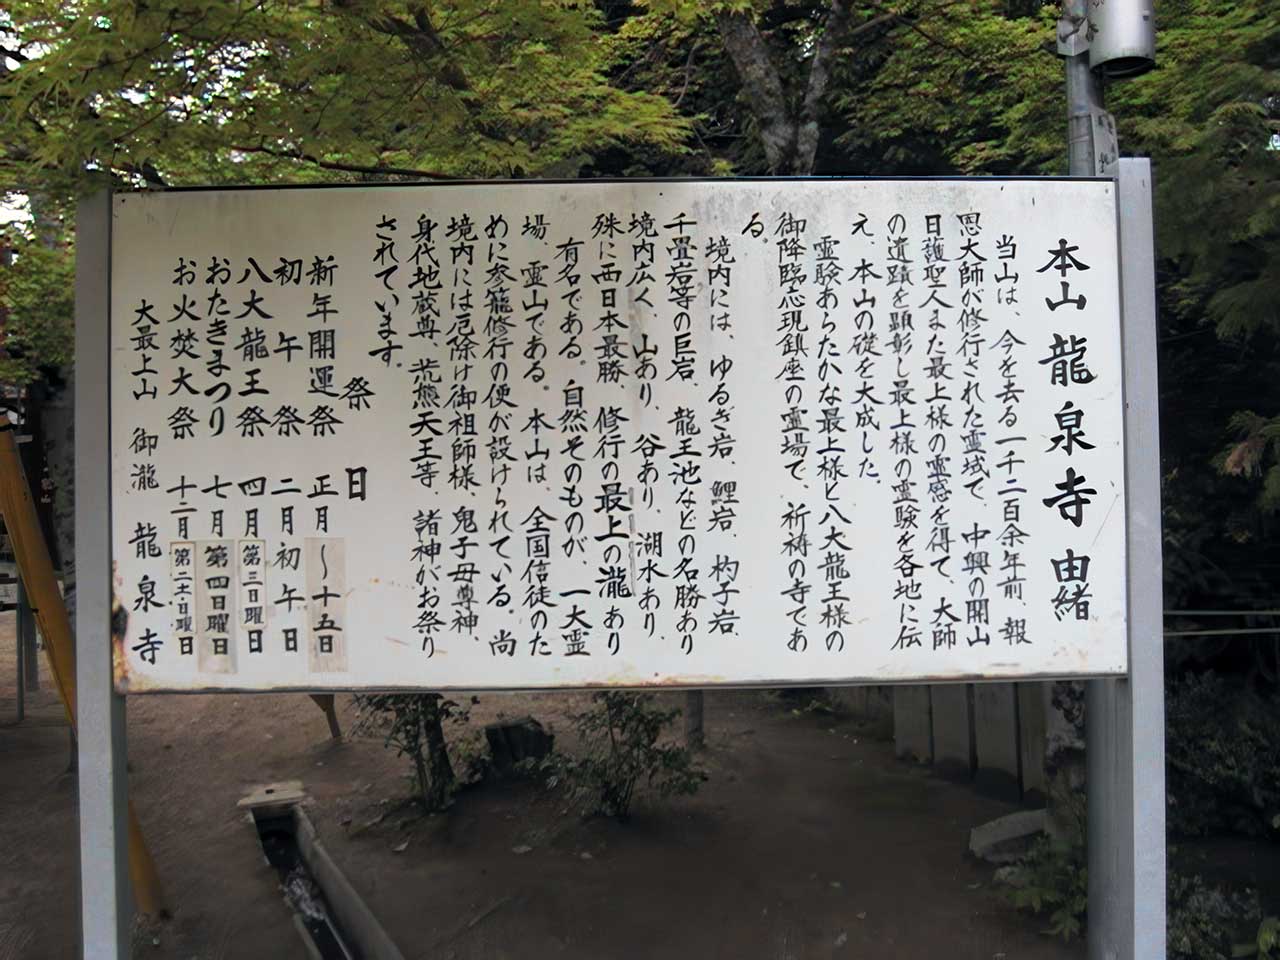 本山龍泉寺由緒
当山は、今を去る一千二百余年前、報
恩大師が修行された霊域で、中興の開山
日護聖人また最上様の霊感を得て、大師
の遺蹟を顕彰し最上様の霊験を各地に伝
え、本山の礎を大成した。
霊験あらたかな最上様と八大龍王様の
御降臨応現鎮座の霊場で、祈祷の寺であ
る。
境内には、ゆるぎ岩、鯉岩、杓子岩、
千畳岩等の巨岩、龍王池などの名勝あり
境内広く、山あり、谷あり、湖水あり、
殊に西日本最勝、修行の最上の瀧あり
有名である。自然そのものが、一大霊
場、霊山である。本山は、全国信徒のた
めに参籠修行の便が設けられている。尚
境内には厄除け御祖師様、鬼子母尊神、
身代地蔵尊、荒熊天王等、諸神がお祭り
されています。
祭日
新年開運祭 正月〜十五日
初午祭 二月初午日
八大龍王祭 四月第三日曜日
おたきまつり 七月第四日曜日
お火焚大祭 十二月第二土・日曜日
大最上山 御瀧 龍泉寺